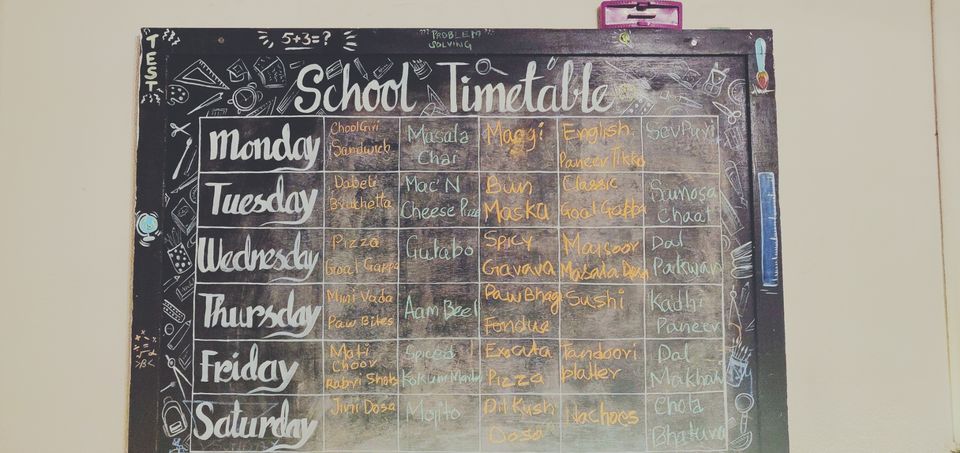 TEST
5+3=?
PROBLEM
SOLVING
School Timetable
Monday
ChoolGiri
Sandwich
Masala
Chai
Maggi
English
Paneer Tikka
SevPuri
Tuesday
Dabeli
Bruchetta
Mac'N
Cheese Pizza
Bun
Maska
Classic
Goal Gappa
Samosa
Chaat
Wednesday
Pizza
Goal Gappa
Gulabo
Spicy
Gavava
Maisoor
Masala Dosa
Dal
Pakwan
Thursday
Mini Vada
Paw Bites
Aam Beel
Paw Bhagi
Fondue
Sushi
Kadhi
Paneer
Friday
Moti
Choor
Rabri Shots
Spiced
Exocata
Pizza
Tandoori
platter
Dal
Makhani
Saturday
Jini Dosa
Mojito
Dil Kush
Dosa
Nachoes
Chola
Bhatura